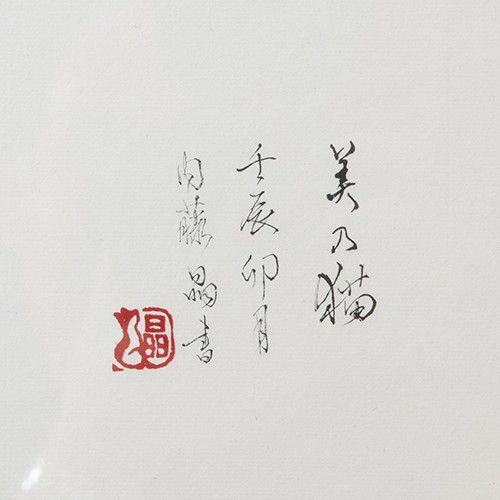 美乃猫
壬辰卯月
内藤晶書
晶